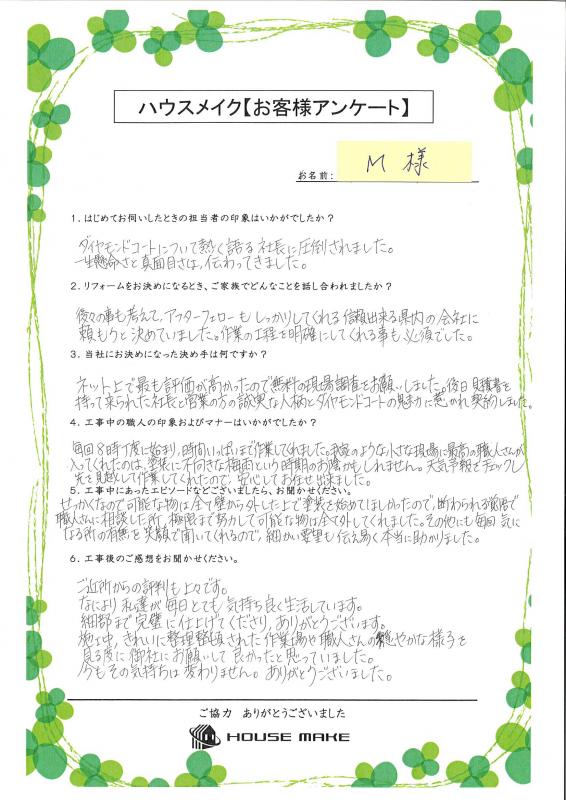 ハウスメイク【お客様アンケート】
お名前： M 様
1．はじめてお伺いしたときの担当者の印象はいかがでしたか？
ダイヤモンドコートについて熱く語る社長に圧倒されました。
一生懸命さと真面目さは、伝わってきました。
2．リフォームをお決めになるとき、ご家族でどんなことを話し合われましたか？
後々の事も考えて、アフターフォローもしっかりしてくれる信頼出来る県内の会社に
頼もうと決めていました。作業の工程を明確にしてくれる事も必須でした。
3．当社にお決めになった決め手は何ですか？
ネット上で最も評価が高かったので無料の現場調査をお願いしました。後日見積書を
持って来られた社長と営業の方の誠実な人柄とダイヤモンドコートの魅力に惹かれ契約しました。
4．工事中の職人の印象およびマナーはいかがでしたか？
毎回8時丁度に始まり、時間いっぱいまで作業してくれました。我家のような小さな現場に最高の職人さんが
入ってくれたのは、塗装に不向きな梅雨という時期のお陰かもしれません。天気予報をチェックし
先を見越して作業してくれたので、安心してお任せ出来ました。
5．工事中にあったエピソードなどございましたら、お聞かせください。
せっかくなので可能な物は全て壁から外した上で塗装を始めてほしかったので、断わられる覚悟で
職人さんに相談した所、極限まで努力して可能な物は全て外してくれました。その他にも毎回気に
なる所の有無を笑顔で聞いてくれるので、細かい要望も伝え易く本当に助かりました。
6．工事後のご感想をお聞かせください。
ご近所からの評判も上々です。
なにより私達が毎日とても気持ち良く生活しています。
細部まで完璧に仕上げてくださり、ありがとうございます。
施工中、きれいに整理整頓された作業場や職人さんの穏やかな様子を
見る度に御社にお願いして良かったと思っていました。
今もその気持ちは変わりません。ありがとうございました。
ご協力 ありがとうございました
HOUSE MAKE